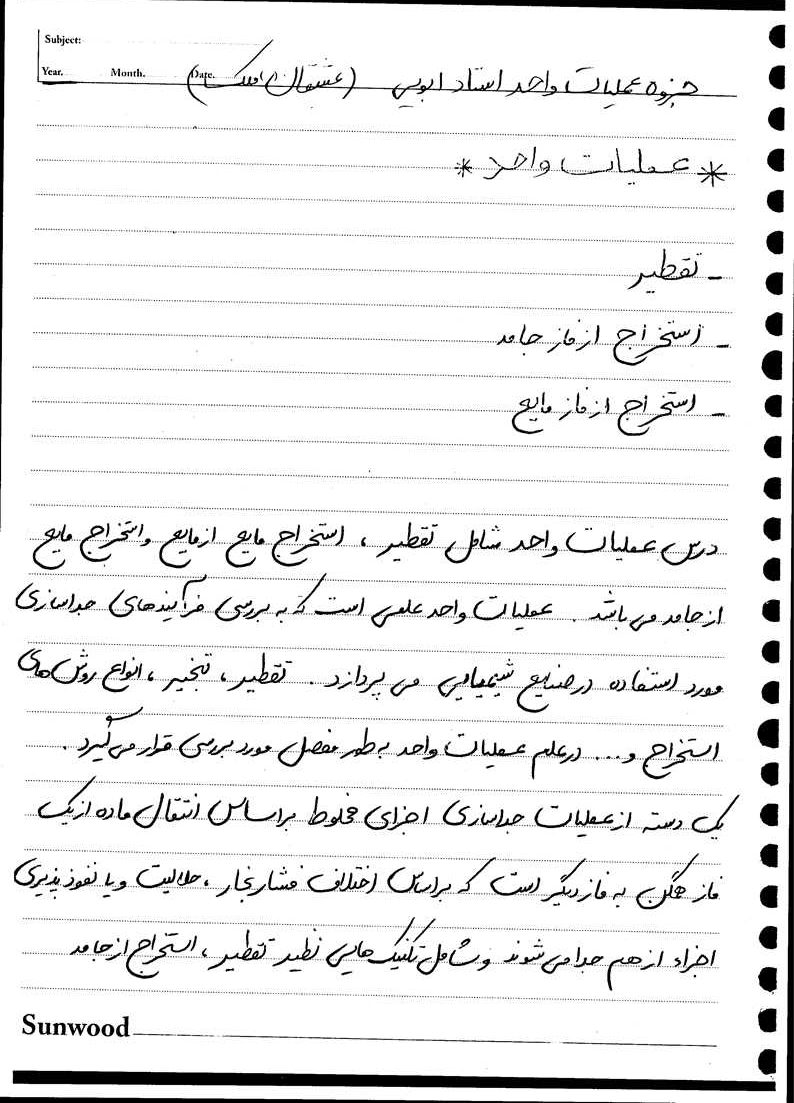 Subject:
Year. Month. Date.
جزوه عملیات واحد استاد ابویی
* عملیات واحد *
- تقطیر
- استخراج از فاز جامد
- استخراج از فاز مایع
درس عملیات واحد شامل تقطیر ، استخراج مایع از مایع و استخراج مایع
از جامد می باشد . عملیات واحد علمی است که به بررسی فرآیندهای جداسازی
مورد استفاده در صنایع شیمیایی می پردازد . تقطیر ، تبخیر ، انواع روش های
استخراج و ... در علم عملیات واحد به طور مفصل مورد بررسی قرار می گیرد .
یک دسته از عملیات جداسازی اجزای مخلوط براساس انتقال ماده از یک
فاز همگن به فاز دیگر است که براساس اختلاف فشار بخار ، حلالیت و یا نفوذ پذیری
اجزاء از هم جدا می شوند و شامل تکنیک هایی نظیر تقطیر ، استخراج از جامد
Sunwood